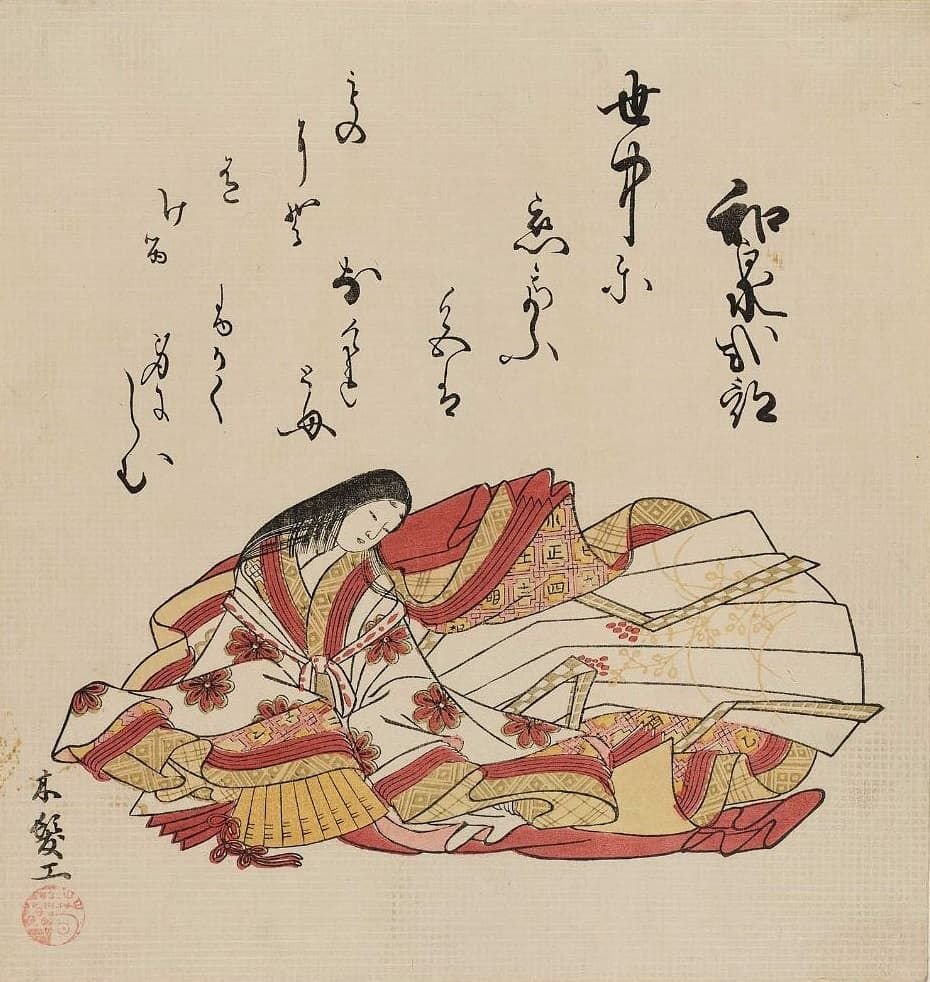 和泉式部
世中に
恋てふ
色は
なけれ
ども
ふかく
身にしむ
もの
にぞ
あり
ける
木髪工